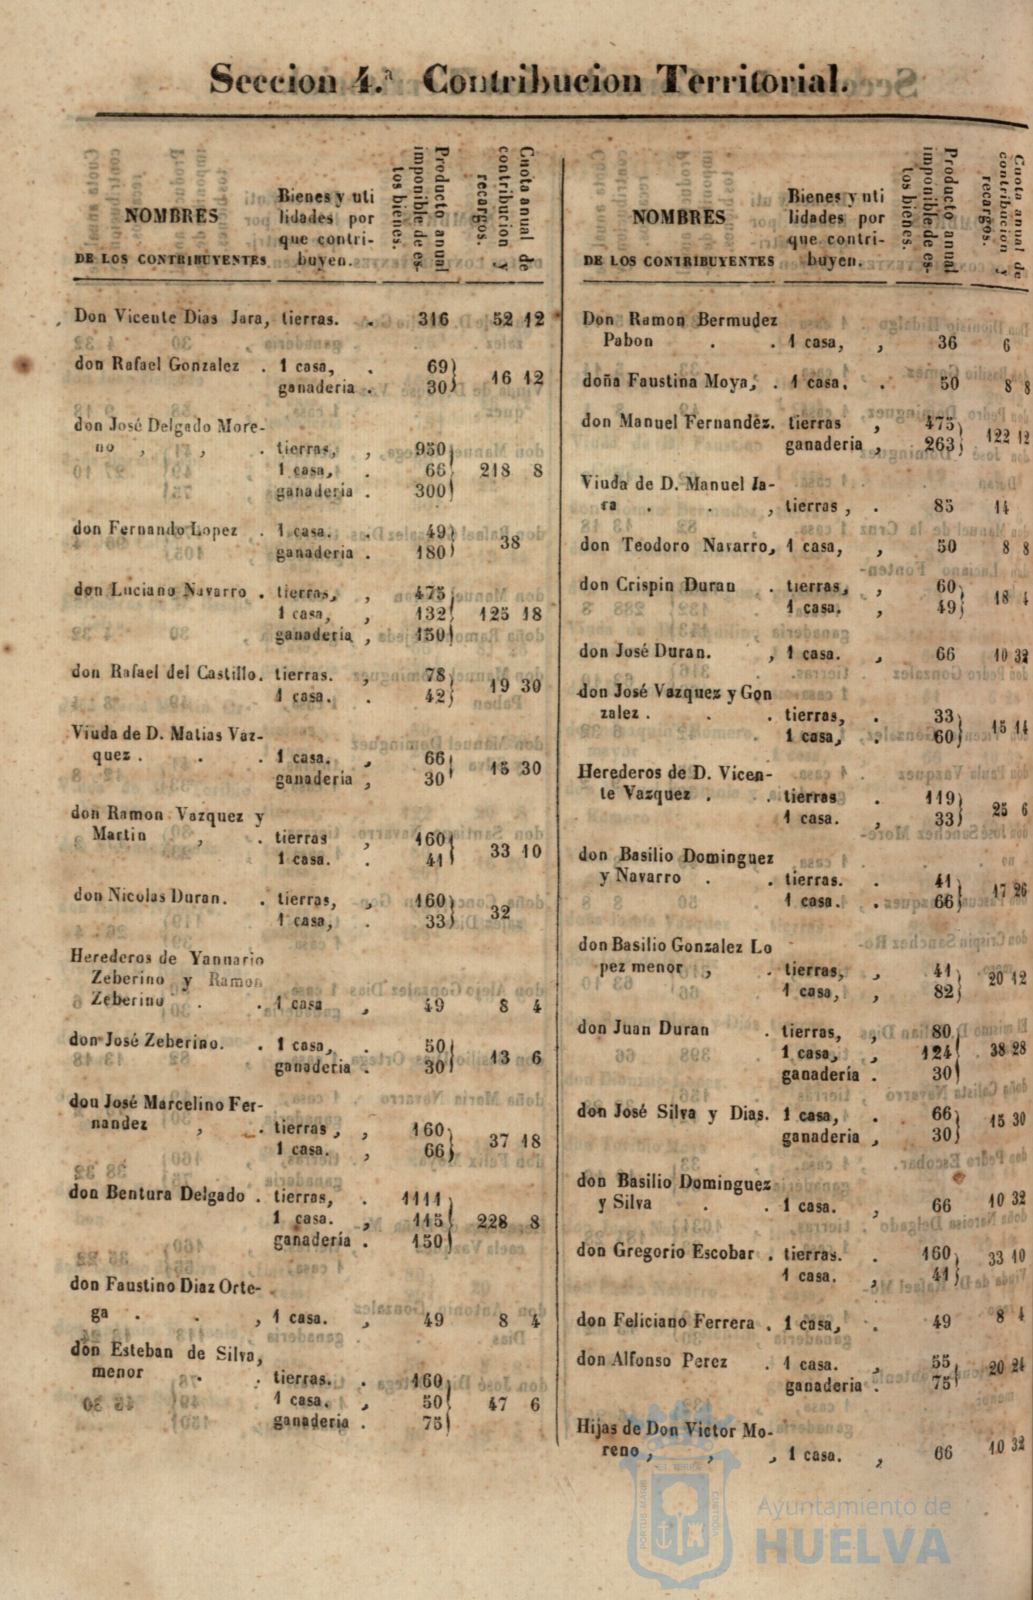 Seccion 4.ª Contribucion Territorial.
NOMBRES
DE LOS CONTRIBUYENTES
Bienes y uti
lidades por
que contri-
buyen.
Producto anual
imponible de es-
tos bienes.
Cuota anual de
contribucion y
recargos.
Don Vicente Dias Jara, tierras. . 316 52 12
don Rafael Gonzalez . 1 casa, . 69
16 12
ganaderia . 30
don José Delgado More-
no , , . tierras, , 950
1 casa, . 66 218 8
ganaderia . 300
don Fernando Lopez . 1 casa. . 49
38
ganaderia . 180
don Luciano Navarro . tierras, , 475
1 casa, , 132 125 18
ganaderia , 150
don Rafael del Castillo. tierras. , 78
19 30
1 casa. . 42
Viuda de D. Matias Vaz-
quez . . . 1 casa. , 66
15 30
ganaderia , 30
don Ramon Vazquez y
Martin , . tierras , 160
33 10
1 casa. . 41
don Nicolas Duran. . tierras, , 160
32
1 casa, . 33
Herederos de Yannario
Zeberino y Ramon
Zeberino . . 1 casa , 49 8 4
don José Zeberino. . 1 casa, . 50
13 6
ganaderia . 30
don José Marcelino Fer-
nandez , . tierras , , 160
37 18
1 casa. , 66
don Bentura Delgado . tierras, . 1111
1 casa. , 115 228 8
ganadería . 150
don Faustino Diaz Orte-
ga . . , 1 casa. , 49 8 4
don Esteban de Silva,
menor . . tierras. . 160
1 casa. , 50 47 6
ganaderia . 75
NOMBRES
DE LOS CONTRIBUYENTES
Bienes y uti
lidades por
que contri-
buyen.
Producto anual
imponible de es-
tos bienes.
Cuota anual de
contribucion y
recargos.
Don Ramon Bermudez
Pabon . . 1 casa, , 36 6
doña Faustina Moya, . 1 casa. . 50 8 8
don Manuel Fernandez. tierras , 475
122 12
ganaderia , 263
Viuda de D. Manuel Ja-
ra . . , tierras , . 85 14
don Teodoro Navarro, 1 casa, , 50 8 8
don Crispin Duran . tierras, , 60
18 4
1 casa. , 49
don José Duran. , 1 casa. , 66 10 32
don José Vazquez y Gon
zalez . . . tierras, . 33
15 14
1 casa, . 60
Herederos de D. Vicen-
te Vazquez . . tierras . 119
25 6
1 casa. , 33
don Basilio Dominguez
y Navarro . . tierras. . 41
17 26
1 casa. . 66
don Basilio Gonzalez Lo
pez menor , . tierras, , 41
20 12
1 casa, , 82
don Juan Duran . tierras, , 80
1 casa, , 124 38 28
ganadería . 30
don José Silva y Dias. 1 casa, . 66
15 30
ganaderia , 30
don Basilio Dominguez
y Silva . . 1 casa. , 66 10 32
don Gregorio Escobar . tierras. . 160
33 10
1 casa. , 41
don Feliciano Ferrera . 1 casa, . 49 8 4
don Alfonso Perez . 1 casa. , 55
20 24
ganaderia . 75
Hijas de Don Victor Mo-
reno , , , 1 casa. , 66 10 32
PORTUS MARIS ET TERRAE CUSTODIA
Ayuntamiento de
HUELVA